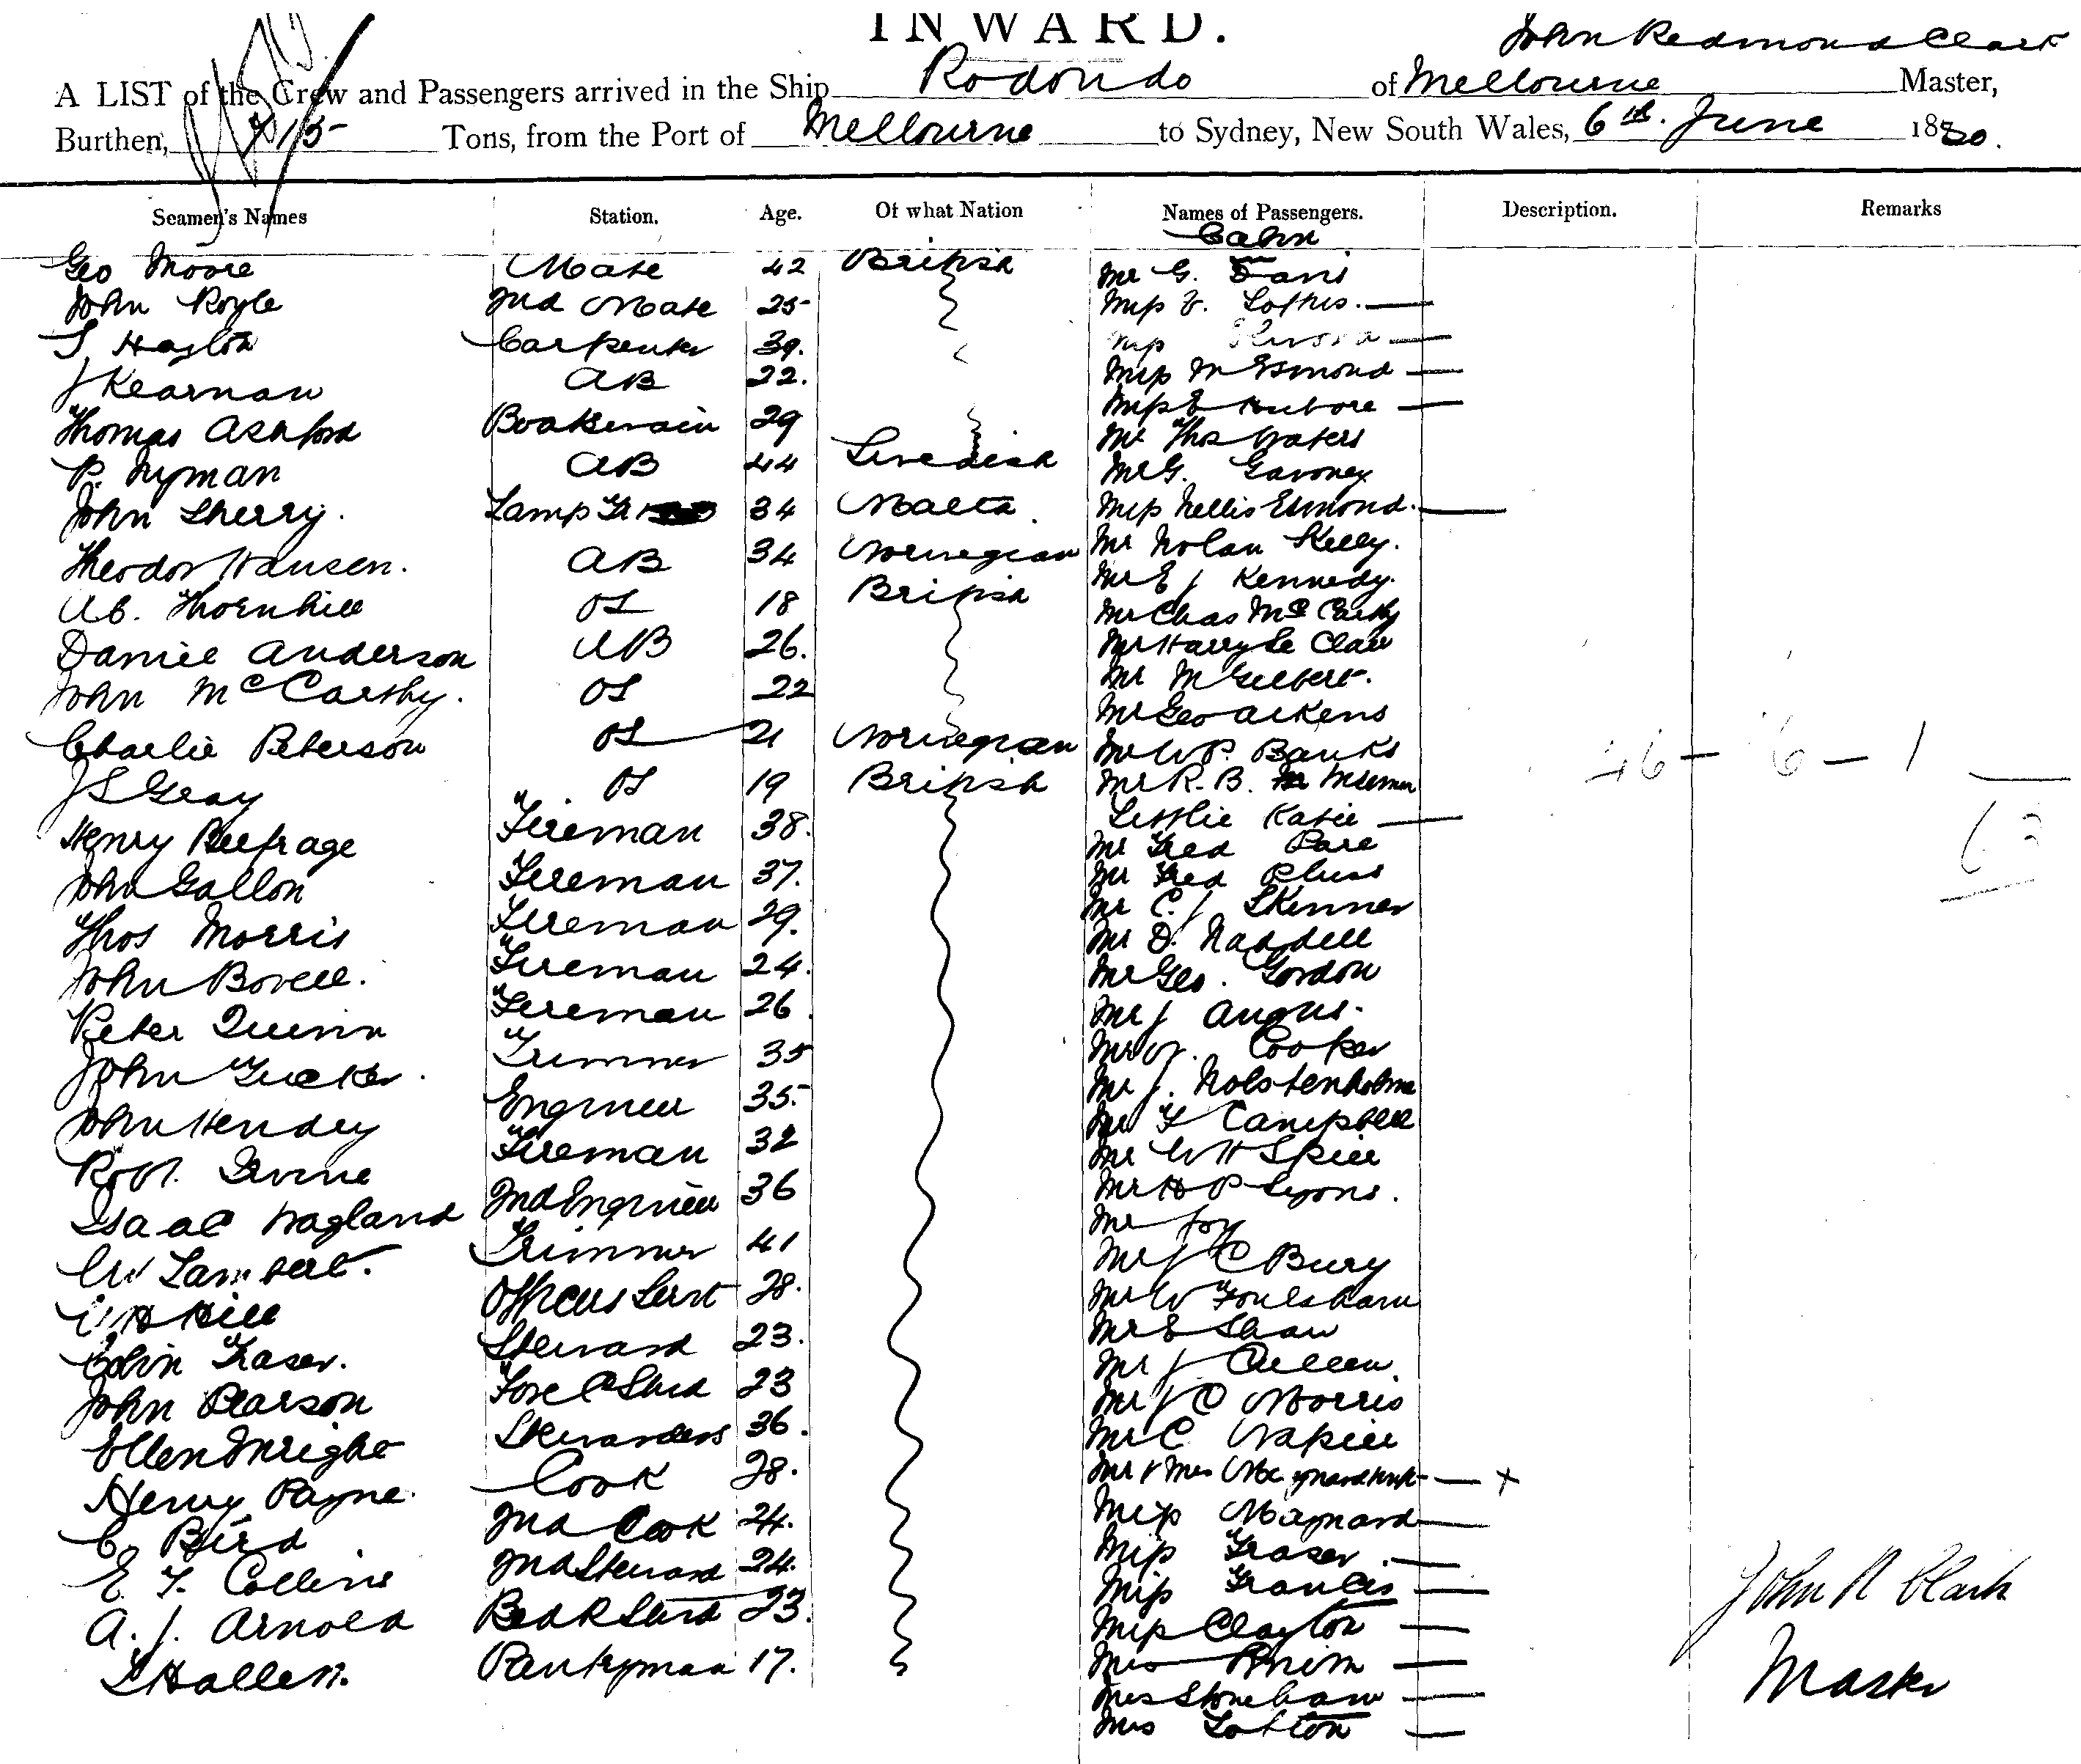 INWARD.
John Redmond Clark
A LIST of the Crew and Passengers arrived in the Ship Rodondo of Melbourne Master,
Burthen, 715 Tons, from the Port of Melbourne to Sydney, New South Wales, 6th. June 1880.
Seamen's Names Station. Age. Of what Nation Names of Passengers. Description. Remarks
Cabin
Geo Moore Mate 42 British Mr G. Davis
John Royle 2nd Mate 25 Miss Loftus.
Carpenter 39. Miss
J Kearnan AB 22. Miss M Esmond
Thomas Ashford Boatswain 29 Miss E
Mr Thos Waters
P. Nyman AB 44 Swedish Mr G. Gavoney
John Sherry. Lamp 34 Malta. Miss Nellie Esmond.
Theodor Hansen. AB 34 Norwegian Mr Nolan Skelly.
Mr E J Kennedy.
Ab. Thornhill OS 18 British Mr Chas McCarthy
Daniel Anderson AB 26. Mr Harry Le Clair
John McCarthy. OS 22 Mr M Gilbert.
Mr Geo Aikens
Charlie Peterson OS 21 Norwegian Mr W P. Banks 46 - 6 - 1
J S Gray OS 19 British Mr R. B.
Little Katie
Henry Belfrage Fireman 38. Mr Fred Pare 63
John Gallon Fireman 37. Mr Fred Pluss
Mr C. J Skinner
Thos Morris Fireman 29. Mr D. Waddell
John Bovell. Fireman 24. Mr Geo. Gordon
Peter Quinn Fireman 26. Mr J Angus.
John Tucker. Trimmer 35 Mr W. Cooper
Mr J. Wolstenholme
John Hendry Engineer 35. Mr F Campbell
Robt. Irvine Fireman 32 Mr W H Spier
Isaac Wagland 2nd Engineer 36 Mr H P Lyons.
Mr Joy
W Lambert. Trimmer 41 Mr J C Bury
W H Hill Officers Servt 28. Mr W Foulsham
Colin Fraser. Steward 23. Mr E Shaw
Mr J Cullen
John Pearson Fore C Stwd 23 Mr J C Morris
Ellen Wright Stewardess 36. Mr C Napier
Henry Payne. Cook 28. Mr & Mrs Maynard x
C. Bird 2nd Cook 24. Miss Maynard
Miss Fraser
E. F. Collins 2nd Steward 24. Miss Francis
A. J. Arnold Bed R Stwd 23. Miss Clayton
Hallett. Pantryman 17. Mrs
Mrs Stoneham
Mrs Lotton
John R Clark
Master